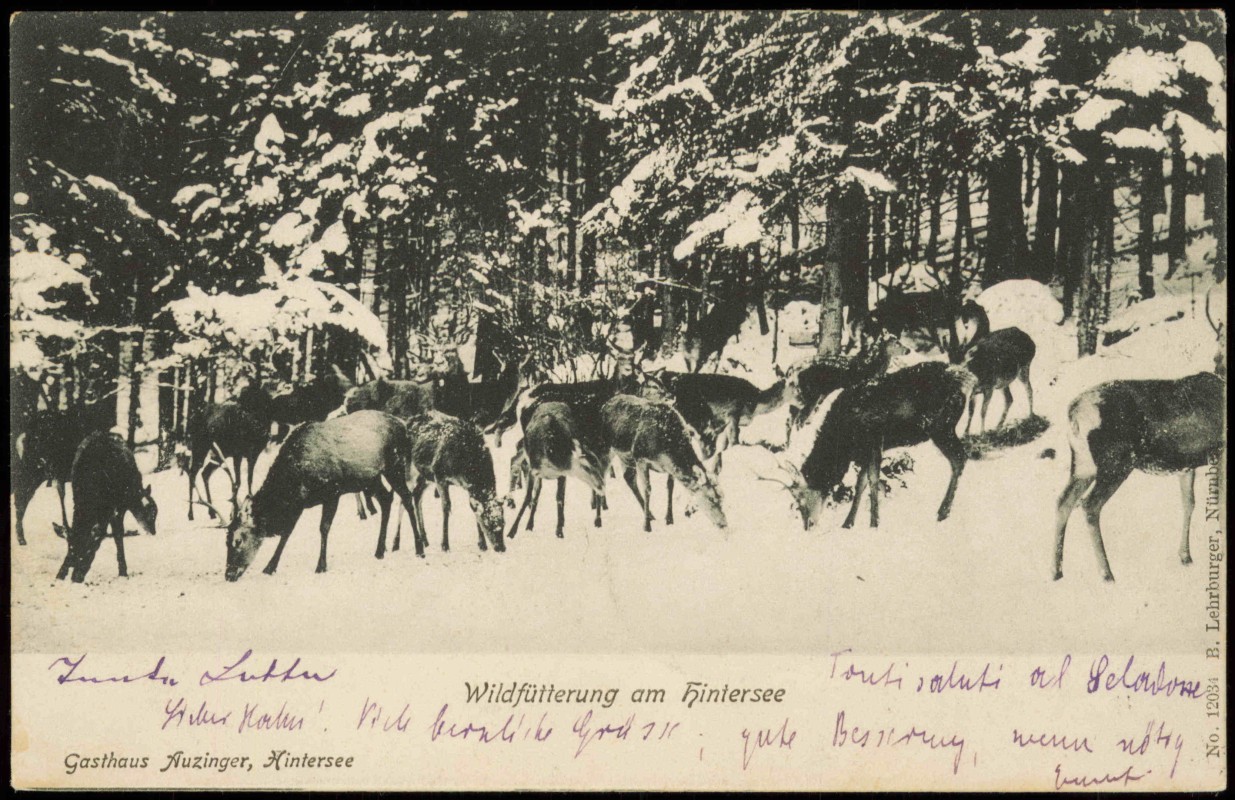 Tanti saluti al Seladone
Wildfütterung am Hintersee
Lieber Hahn! Viele herzliche Grüsse, gute Besserung, wenn nötig
Gasthaus Auzinger, Hintersee
No. 12034 B. Lehrburger, Nürnberg